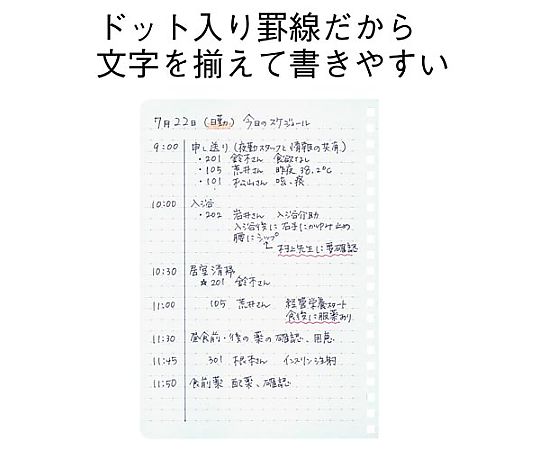 ドット入り罫線だから
文字を揃えて書きやすい
7月22日(日勤) 今日のスケジュール
9:00 申し送り(夜勤スタッフと情報の共有)
・201 鈴木さん 食欲なし
・105 荒井さん 昨夜38.2℃
・101 松山さん 咳、痰
10:00 入浴
・202 岩井さん 入浴介助
入浴後に右手にかゆみ止め
腰にシップ
村上先生に要確認
10:30 居室清掃
★201 鈴木さん
11:00 105 荒井さん 経管栄養スタート
食後に服薬あり
11:30 昼食前・後の薬の確認、用意
11:45 301 根本さん インスリン注射
11:50 食前薬 配薬、確認